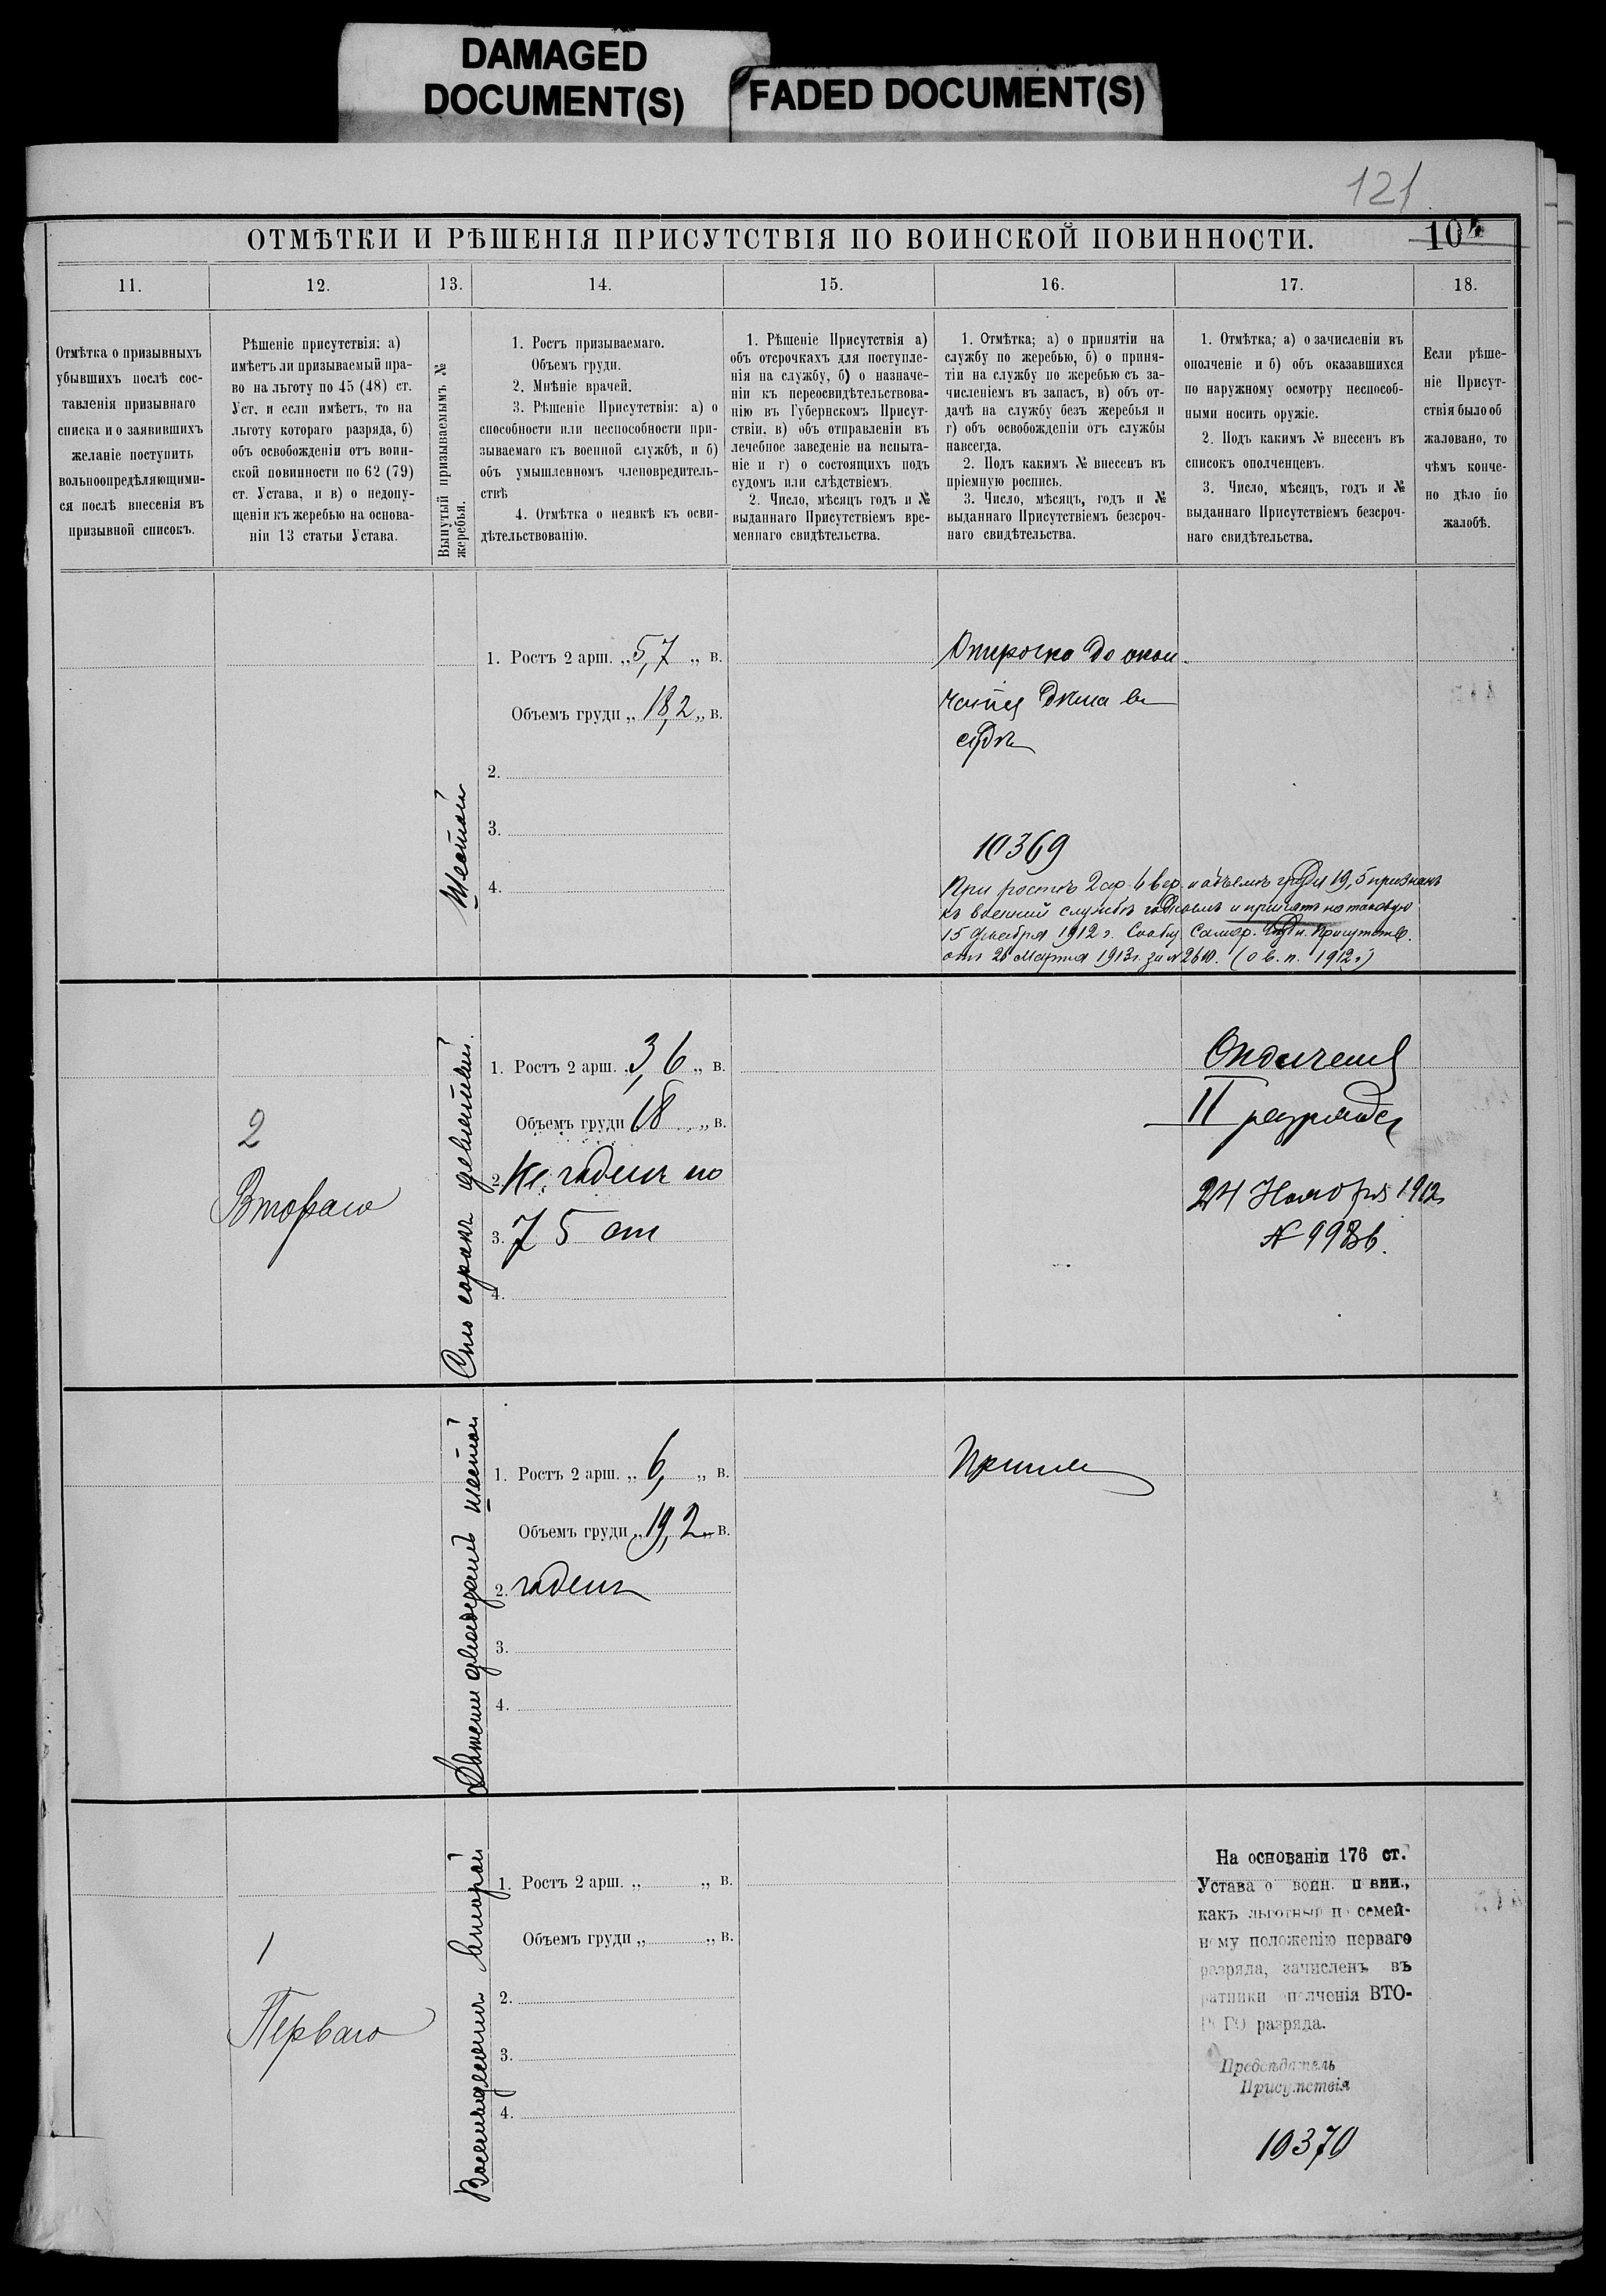 DAMAGED
DOCUMENT(S)
FADED DOCUMENT(S)
121
104
ОТМѢТКИ И РѢШЕНІЯ ПРИСУТСТВІЯ ПО ВОИНСКОЙ ПОВИННОСТИ.
11.
12.
13.
14.
15.
16.
17.
18.
Отмѣтка о призывныхъ
убывшихъ послѣ сос-
тавленія призывнаго
списка и о заявившихъ
желаніе поступить
вольноопредѣляющими-
ся послѣ внесенія въ
призывной списокъ.
Рѣшеніе присутствія: а)
имѣетъ ли призываемый пра-
во на льготу по 45 (48) ст.
Уст. и если имѣетъ, то на
льготу котораго разряда, б)
объ освобожденіи отъ воин-
ской повинности по 62 (79)
ст. Устава, и в) о недопу-
щеніи къ жеребью на основа-
ніи 13 статьи Устава.
Вынутый призываемымъ №
жеребья.
1. Ростъ призываемаго.
Объемъ груди.
2. Мнѣніе врачей.
3. Рѣшеніе Присутствія: а) о
способности или неспособности при-
зываемаго къ военной службѣ, и б)
объ умышленномъ членовредитель-
ствѣ
4. Отмѣтка о неявкѣ къ осви-
дѣтельствованію.
1. Рѣшеніе Присутствія а)
объ отсрочкахъ для поступле-
нія на службу, б) о назначе-
ніи къ переосвидѣтельствова-
нію въ Губернскомъ Присут-
ствіи, в) объ отправленіи въ
лечебное заведеніе на испыта-
ніе и г) о состоящихъ подъ
судомъ или слѣдствіемъ.
2. Число, мѣсяцъ годъ и №
выданнаго Присутствіемъ вре-
меннаго свидѣтельства.
1. Отмѣтка; а) о принятіи на
службу по жеребью, б) о приня-
тіи на службу по жеребью съ за-
численіемъ въ запасъ, в) объ от-
дачѣ на службу безъ жеребья и
г) объ освобожденіи отъ службы
навсегда.
2. Подъ какимъ № внесенъ въ
пріемную роспись.
3. Число, мѣсяцъ, годъ и №
выданнаго Присутствіемъ безсроч-
наго свидѣтельства.
1. Отмѣтка; а) о зачисленіи въ
ополченіе и б) объ оказавшихся
по наружному осмотру неспособ-
ными носить оружіе.
2. Подъ какимъ № внесенъ въ
списокъ ополченцевъ.
3. Число, мѣсяцъ, годъ и №
выданнаго Присутствіемъ безсроч-
наго свидѣтельства.
Если рѣше-
ніе Присут-
ствія было об
жаловано, то
чѣмъ конче-
но дѣло по
жалобѣ.
Шестой
1. Ростъ 2 арш. „ 5,7 „ в.
Объемъ груди „ 18,2 „ в.
2.
3.
4.
Отсрочка до окон
чанія дѣла въ
судѣ
10369
При ростѣ 2 ар. 4 вер. и объемѣ груди 19,5 признанъ
къ военной службѣ годнымъ и принятъ на таковую
15 декабря 1912 г. Самар. Губерн. Присутств.
отъ 26 Марта 1913 г. за № 2610. (1912 г)
2
Втораго
Сто сорокъ девятый.
1. Ростъ 2 арш. „ 3,6 „ в.
Объемъ груди 18 „ в.
2. Не годенъ по
3. 75 ст
4.
Ополченія
II разряда
24 Ноября 1912
№ 9936.
Двѣсти двадцать шестой
1. Ростъ 2 арш. „ 6, „ в.
Объемъ груди „ 19,2 „ в.
2. годенъ
3.
4.
Принятъ
1
Перваго
Восемьдесятъ второй
1. Ростъ 2 арш. „ „ в.
Объемъ груди „ „ в.
2.
3.
4.
На основаніи 176 ст.
Устава о воин. повин.,
какъ льготный по семей-
ному положенію перваго
разряда, зачисленъ въ
ратники ополченія ВТО-
РОГО разряда.
Предсѣдатель
Присутствія
10370